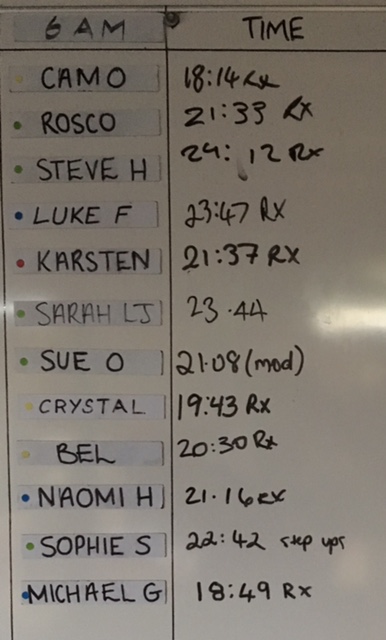 6 AM TIME
CAM O 18:14 Rx
ROSCO 21:33 Rx
STEVE H 24:12 Rx
LUKE F 23:47 RX
KARSTEN 21:37 RX
SARAH LJ 23.44
SUE O 21.08 (mod)
CRYSTAL 19:43 Rx
BEL 20:30 Rx
NAOMI H 21.16 RX
SOPHIE S 22:42 step ups
MICHAEL G 18:49 Rx